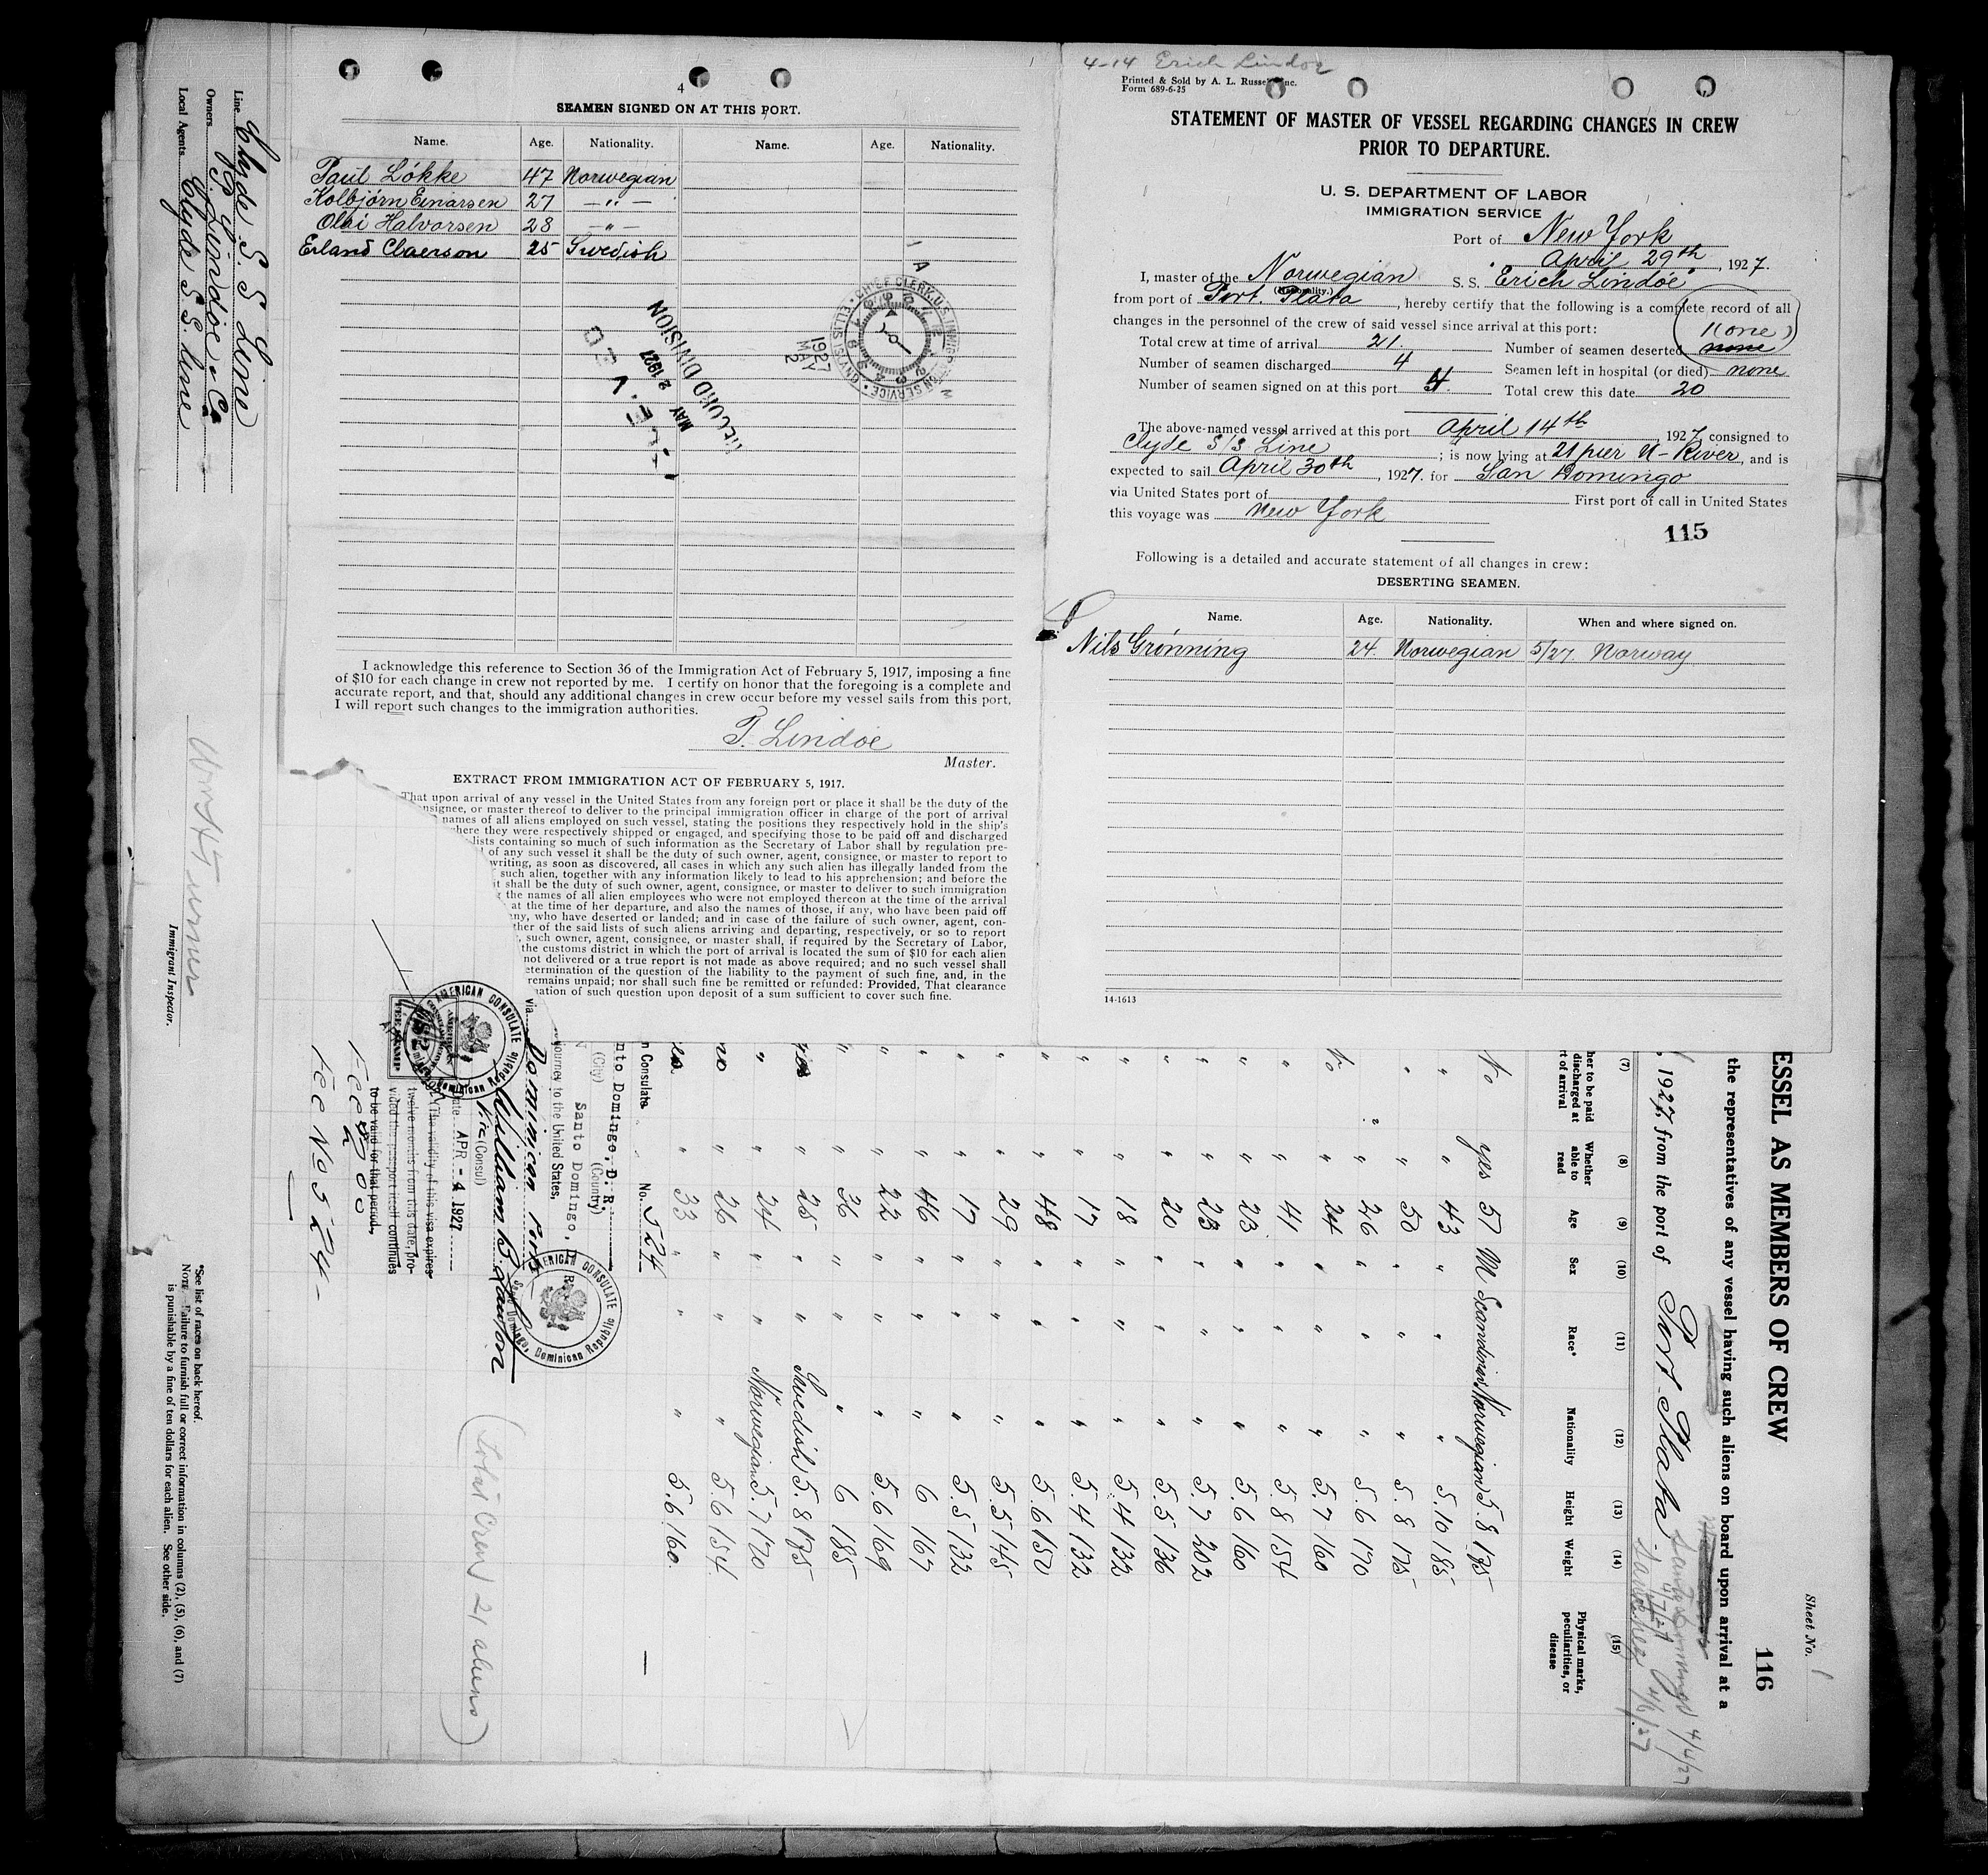 4
SEAMEN SIGNED ON AT THIS PORT.
Name. Age. Nationality. Name. Age. Nationality.
Paul Lökke 47 Norwegian
Kolbjörn Einarsen 27 — " —
Olai Halvorsen 28 — " —
Erland Claerson 25 Swedish
RECORD DIVISION
MAY 2 1927
CHIEF CLERK, U.S. IMMIGRATION SERVICE • ELLIS ISLAND
1927 MAY 2
I acknowledge this reference to Section 36 of the Immigration Act of February 5, 1917, imposing a fine
of $10 for each change in crew not reported by me. I certify on honor that the foregoing is a complete and
accurate report, and that, should any additional changes in crew occur before my vessel sails from this port,
I will report such changes to the immigration authorities.
T. Lindöe
Master.
EXTRACT FROM IMMIGRATION ACT OF FEBRUARY 5, 1917.
That upon arrival of any vessel in the United States from any foreign port or place it shall be the duty of the
onsignee, or master thereof to deliver to the principal immigration officer in charge of the port of arrival
names of all aliens employed on such vessel, stating the positions they respectively hold in the ship's
here they were respectively shipped or engaged, and specifying those to be paid off and discharged
lists containing so much of such information as the Secretary of Labor shall by regulation pre-
l of any such vessel it shall be the duty of such owner, agent, consignee, or master to report to
writing, as soon as discovered, all cases in which any such alien has illegally landed from the
such alien, together with any information likely to lead to his apprehension; and before the
it shall be the duty of such owner, agent, consignee, or master to deliver to such immigration
g the names of all alien employees who were not employed thereon at the time of the arrival
at the time of her departure, and also the names of those, if any, who have been paid off
ny, who have deserted or landed; and in case of the failure of such owner, agent, con-
ther of the said lists of such aliens arriving and departing, respectively, or so to report
, such owner, agent, consignee, or master shall, if required by the Secretary of Labor,
the customs district in which the port of arrival is located the sum of $10 for each alien
not delivered or a true report is not made as above required; and no such vessel shall
etermination of the question of the liability to the payment of such fine, and, in the
remains unpaid; nor shall such fine be remitted or refunded: Provided, That clearance
nation of such question upon deposit of a sum sufficient to cover such fine.
4-14 Erich Lindoe
Printed & Sold by A. L. Russell Inc.
Form 689-6-25
STATEMENT OF MASTER OF VESSEL REGARDING CHANGES IN CREW
PRIOR TO DEPARTURE.
U. S. DEPARTMENT OF LABOR
IMMIGRATION SERVICE
Port of New York
April 29th, 1927.
I, master of the Norwegian S. S. "Erich Lindöe"
(Nationality.)
from port of Port. Plata, hereby certify that the following is a complete record of all
changes in the personnel of the crew of said vessel since arrival at this port: 1 (one)
Total crew at time of arrival 21. Number of seamen deserted none
Number of seamen discharged 4 Seamen left in hospital (or died) none
Number of seamen signed on at this port 4. Total crew this date 20
The above-named vessel arrived at this port April 14th, 1927, consigned to
Clyde S/S Line; is now lying at 21 pier N-River, and is
expected to sail April 30th, 1927. for San Domingo
via United States port of First port of call in United States
this voyage was New York
115
Following is a detailed and accurate statement of all changes in crew:
DESERTING SEAMEN.
Name. Age. Nationality. When and where signed on.
Nils Grönning 24. Norwegian 5/27. Norway
14-1613
Sheet No. 1
116
ESSEL AS MEMBERS OF CREW
the representatives of any vessel having such aliens on board upon arrival at a
, 1927, from the port of Port Plata. Santo Domingo 4/4/27
Sanchez 4/6/27
(7) (8) (9) (10) (11) (12) (13) (14) (15)
her to be paid discharged at rt of arrival
Whether able to read
Age
Sex
Race*
Nationality
Height
Weight
Physical marks, peculiarities, or disease
No yes 57 M Scandinav Norwegian 5.8 175
" " 43 " " " 5.10 185
" " 50 " " " 5.8 175
" " 26 " " " 5.6 170
No " 24 " " " 5.7 160
" " 41 " " " 5.8 154
" " 23 " " " 5.6 160
" " 23 " " " 5.7 202
" " 20 " " " 5.5 136
" " 18 " " " 5.4 132
" " 17 " " " 5.4 132
" " 48 " " " 5.6 150
" " 29 " " " 5.5 145
" " 17 " " " 5.5 132
" " 46 " " " 6 167
" " 22 " " " 5.6 169
" " 36 " " " 6 185
yes " 25 " " Swedish 5.8 175
" " 24 " " Norwegian 5.7 170
no " 26 " " " 5.6 154
" 33 " " " 5.6 160.
n Consulate No. 524
nto Domingo, D. R.
(City) (Country)
Santo Domingo, D. R.
journey to the United States,
via Dominican Ports
William B. Lawton
Vice (Consul)
APR - 4 1927
(The validity of this visa expires
twelve months from this date, pro-
vided the passport itself continues
to be valid for that period.
AMERICAN CONSULATE
Dominican Republic
AMERICAN CONSULATE
Santo Domingo, Dominican Republic
Fee No 524-
(Total Crew 21 aliens)
Line Clyde S. S Line
Owners P. Lindöe & Co
Local Agents Clyde S S. Line
Immigrant Inspector.
*See list of races on back hereof.
NOTE.—Failure to furnish full or correct information in columns (2), (5), (6), and (7)
is punishable by a fine of ten dollars for each alien. See other side.